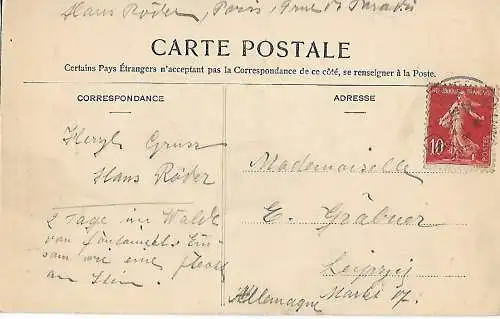 Hans Röder, Paris, 7 rue de Paradis
CARTE POSTALE
Certains Pays Étrangers n'acceptent pas la Correspondance de ce côté, se renseigner à la Poste.
CORRESPONDANCE
Herzl. Gruss
Hans Röder
2 Tage im Walde
von Fontainebl. Ein-
sam wie eine
am Rhein.
ADRESSE
10
POSTES
Mademoiselle
E. Gräbner
Leipzig
Markt 17.
Allemagne